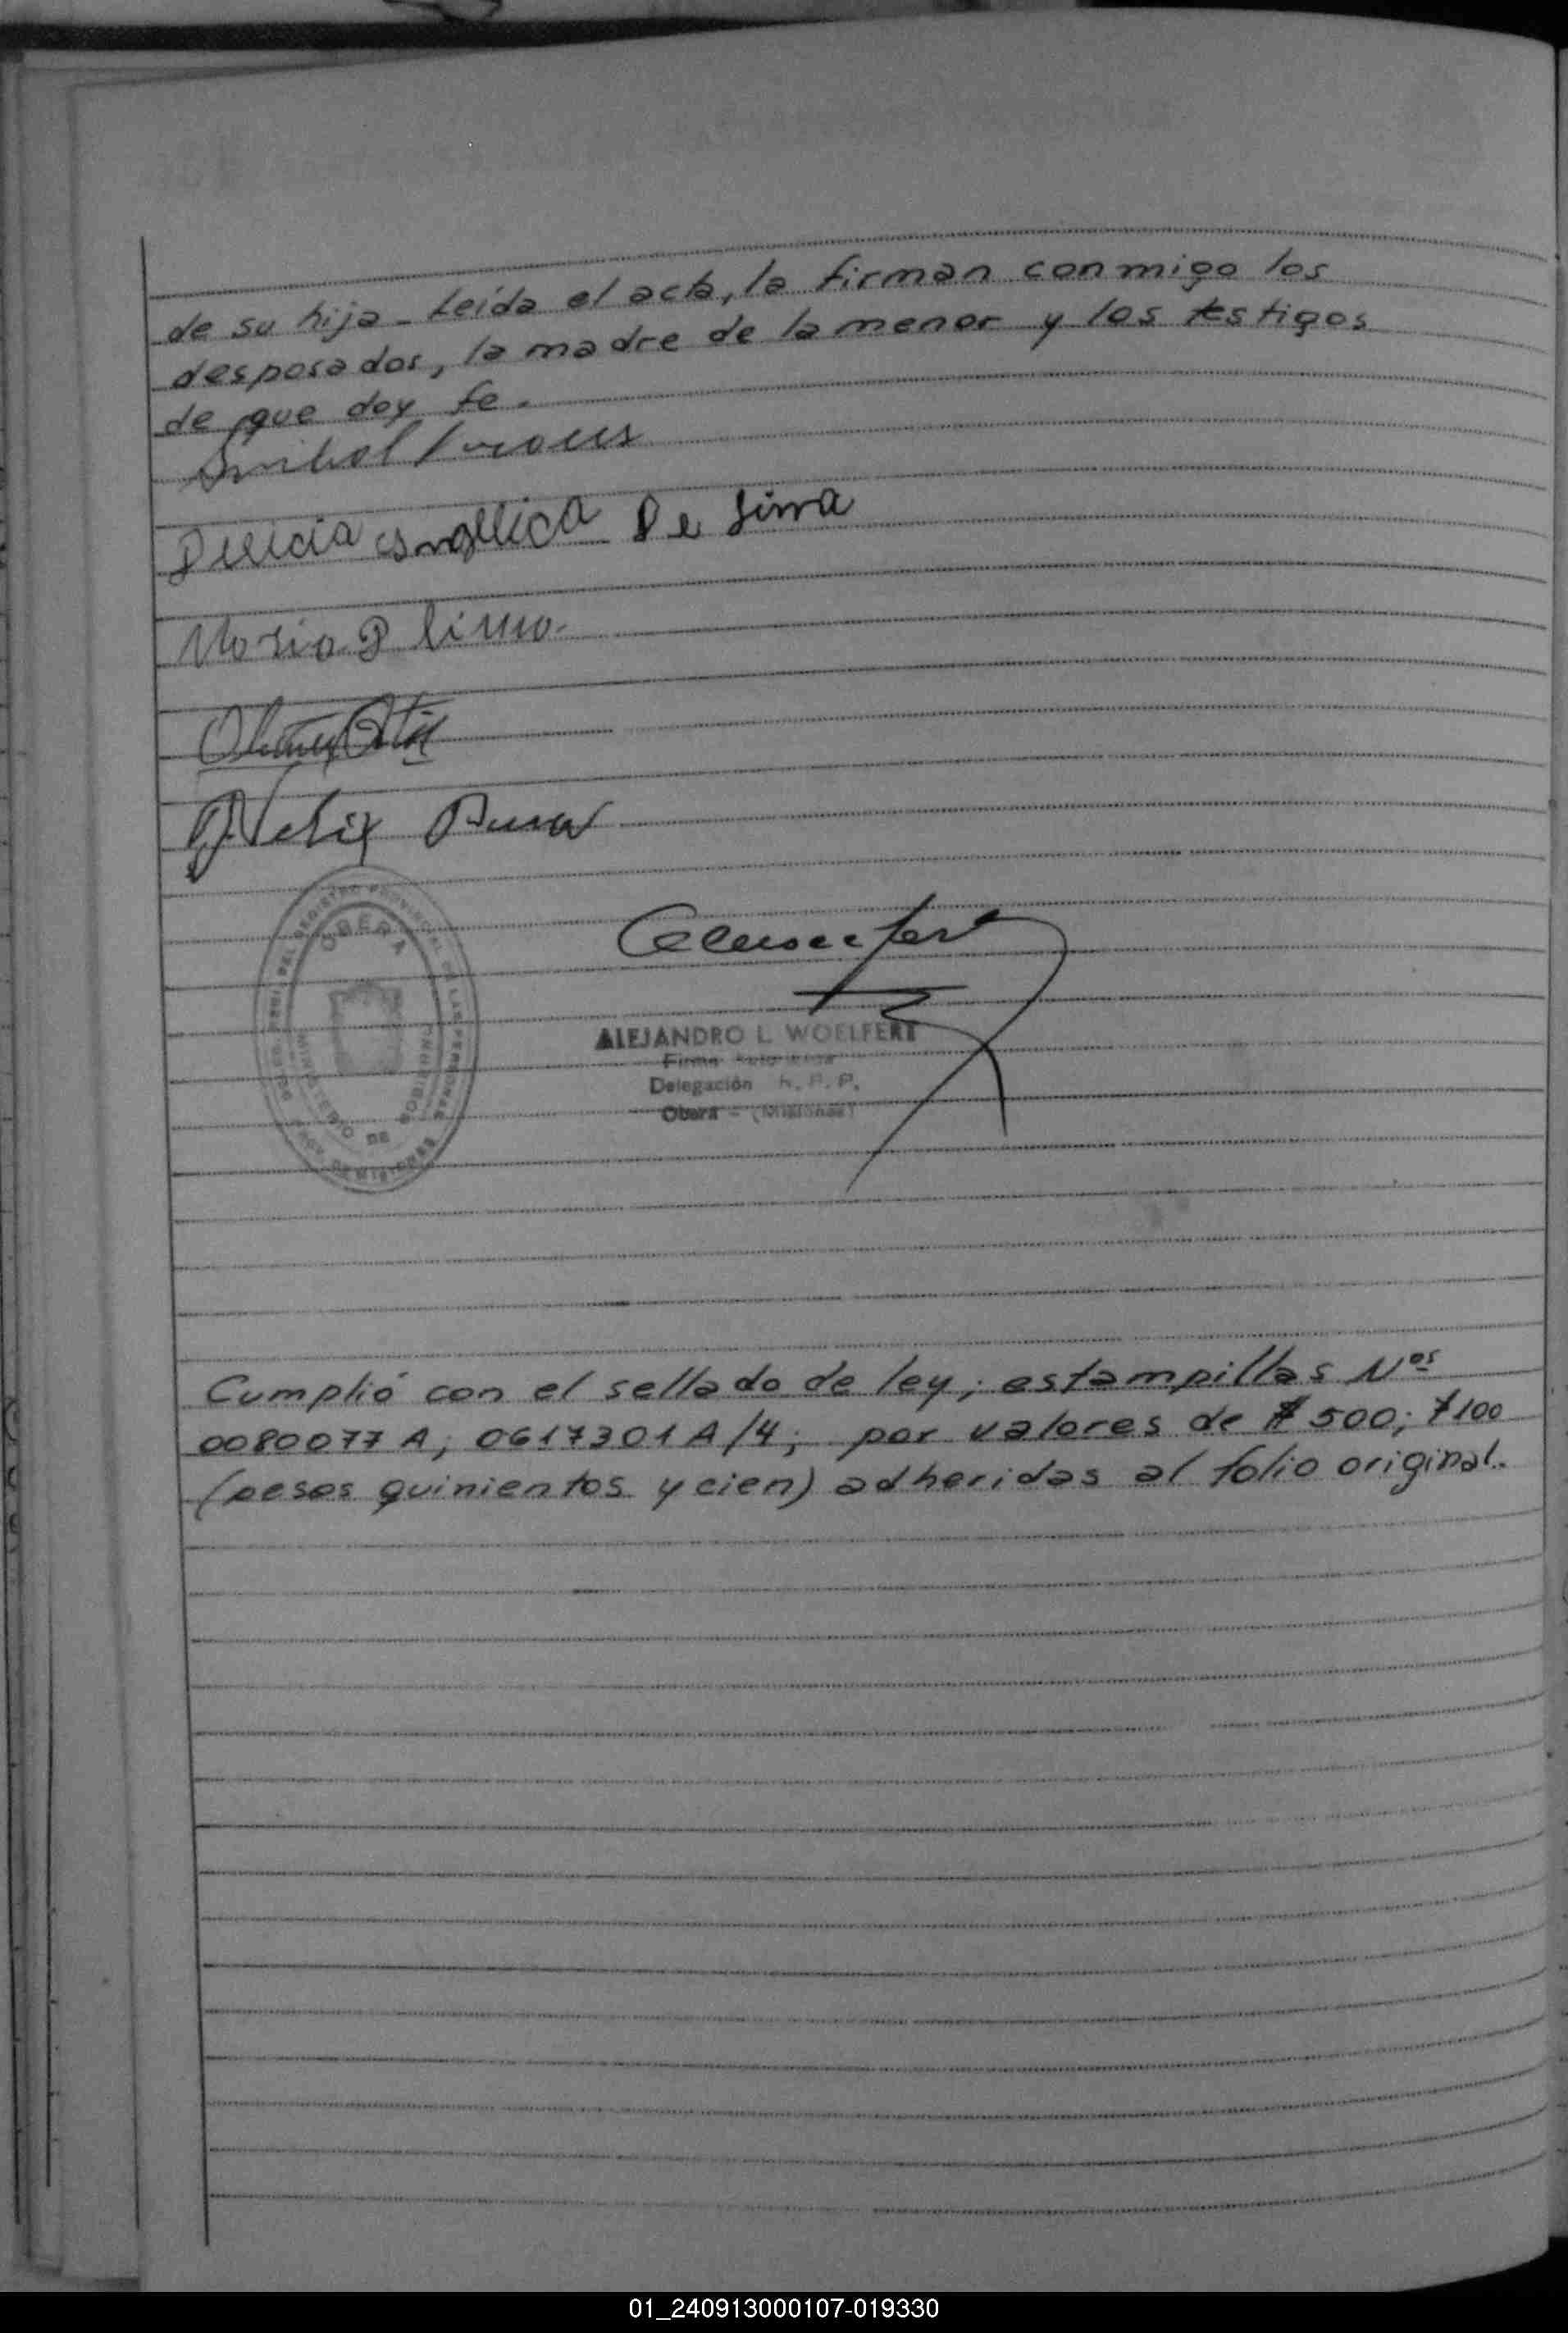 de su hija - Leída el acta, la firman conmigo los
desposados, la madre de la menor y los testigos
de que doy fe.
Delicia Angelica De Lima
Maria D Lima.
Felix
OBERA
REGISTRO PROVINCIAL DE LAS PERSONAS
MINISTERIO DE GOBIERNO
PROV. DE MISIONES
ALEJANDRO L. WOELFERT
Firma
Delegación R. P. P.
Oberá - (Misiones)
Cumplió con el sellado de ley; estampillas Nos
0080077 A; 0617301 A/4; por valores de $ 500; $ 100
(pesos quinientos y cien) adheridas al folio original.
01_240913000107-019330